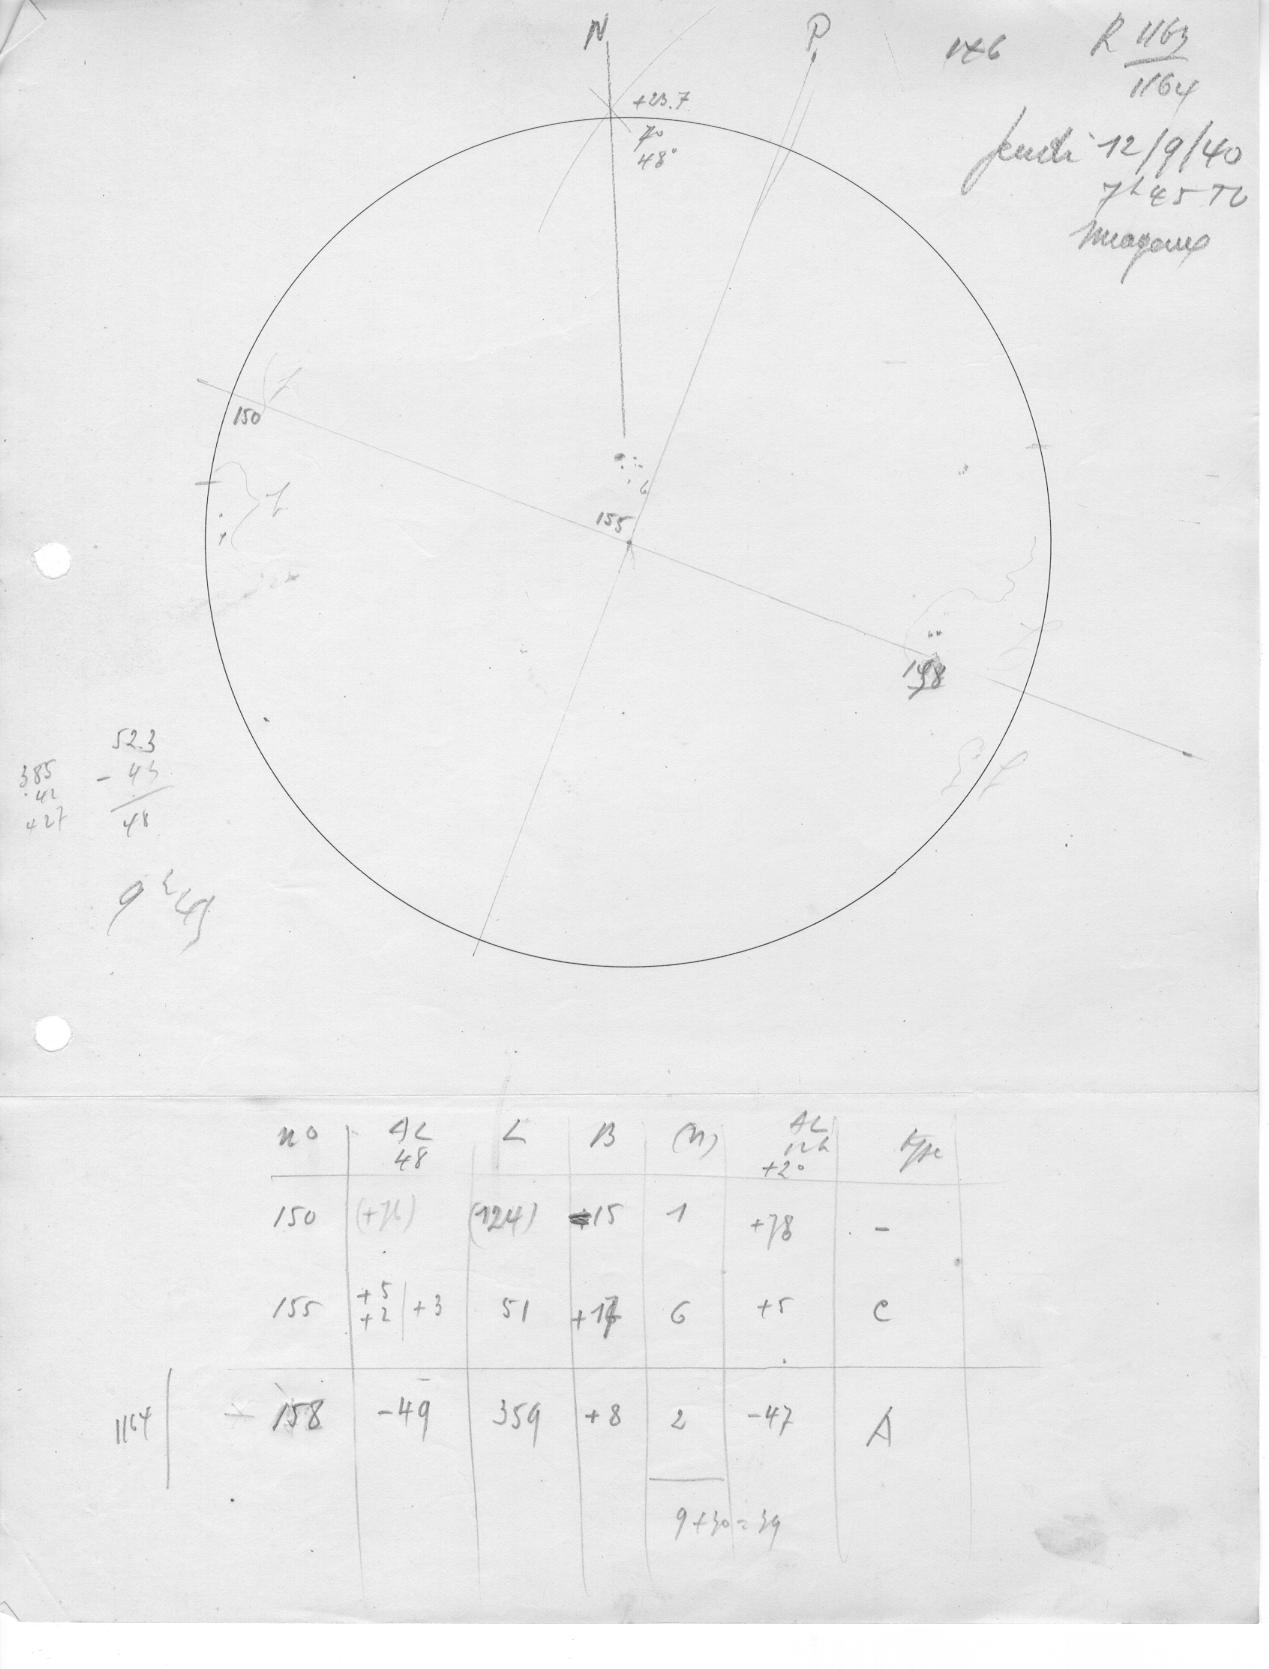 N P 146 R 1163
1164
+23.7
7°
48°
Jeudi 12/9/40
7h45 TU
nuageux
150
155
158
52.3
- 43
48
385
42
427
9h43
no ΔL L B (n) ΔL type
48 12h
+2°
150 (+76) (124) +15 1 +78 -
155 +5 +2 +3 51 6 +5 C
1164 158 -49 359 +8 2 -47 A
9+30=39